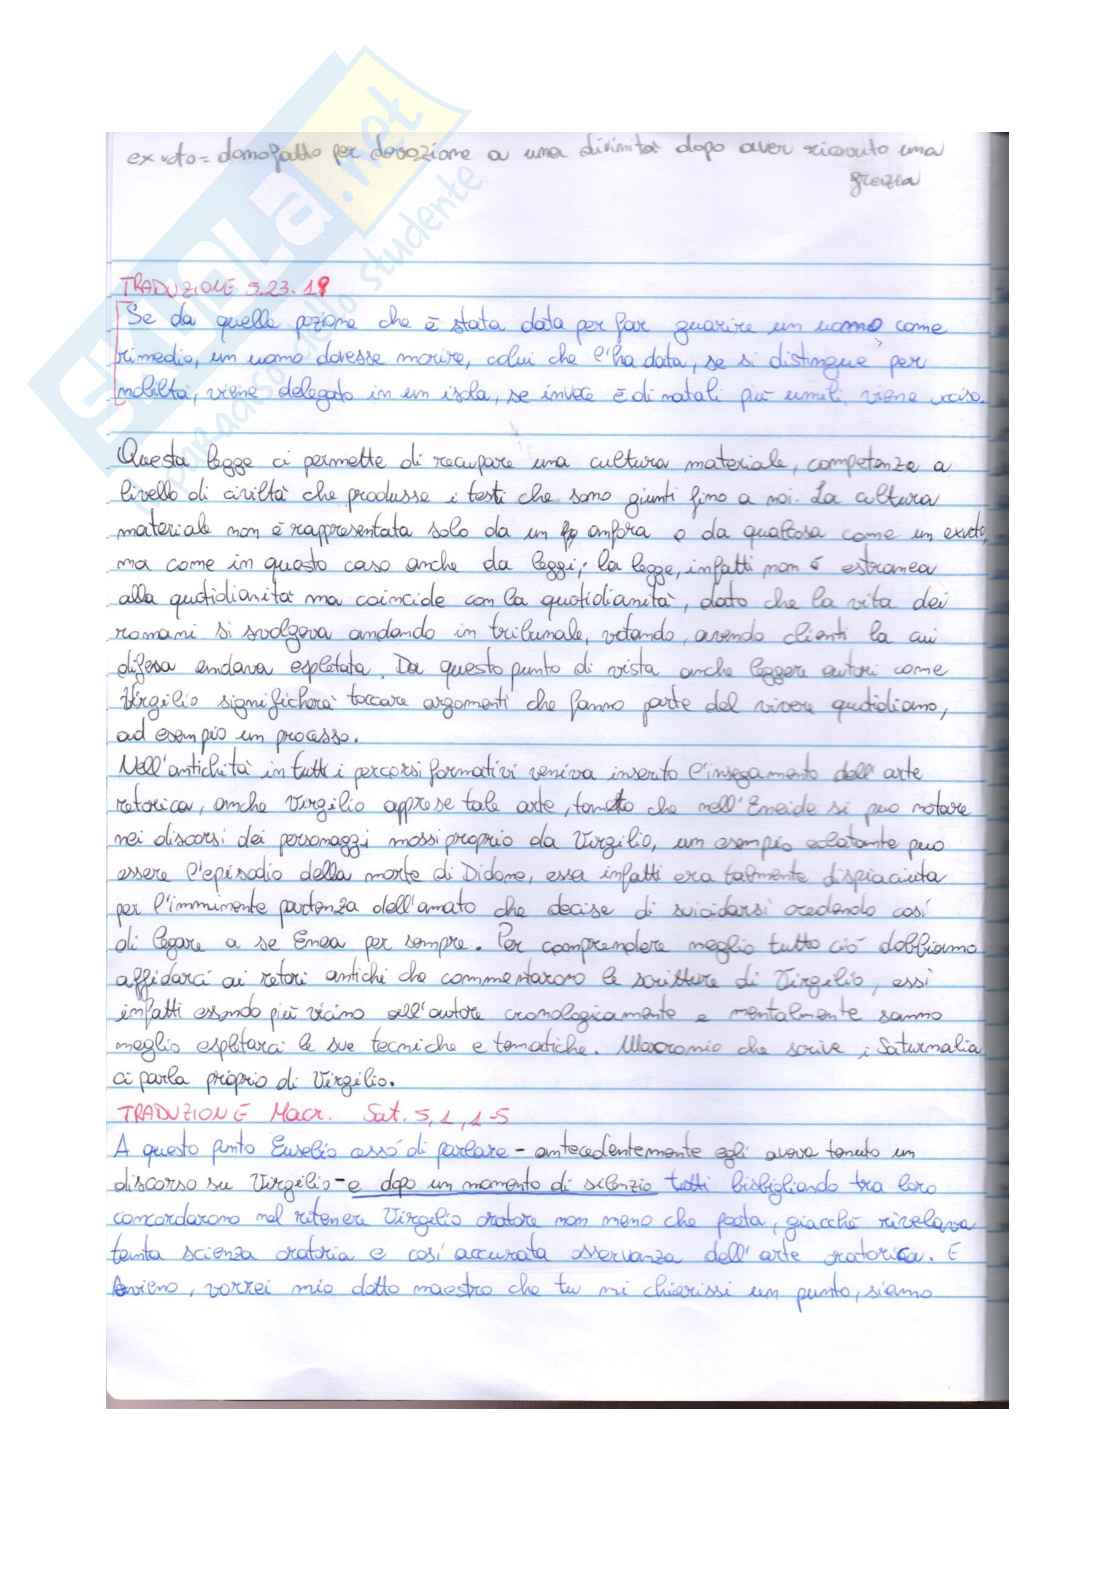 SKUOLA.net
il paradiso dello studente
ex voto = dono fatto per devozione a una divinità dopo aver ricevuto una
grazia
TRADUZIONE 5.23.19
Se da quella pozione che è stata data per far guarire un uomo come
rimedio, un uomo dovesse morire, colui che l'ha data, se si distingue per
nobiltà, viene delegato in un isola, se invece è di natali più umili, viene ucciso.
Questa legge ci permette di recupare una cultura materiale, competenze a
livello di civiltà che produsse i testi che sono giunti fino a noi. La cultura
materiale non è rappresentata solo da un anfora o da qualcosa come un exvoto,
ma come in questo caso anche da leggi; la legge, infatti non è estranea
alla quotidianità ma coincide con la quotidianità, dato che la vita dei
romani si svolgeva andando in tribunale, votando, avendo clienti la cui
difesa andava espletata. Da questo punto di vista anche leggere autori come
Virgilio significherà toccare argomenti che fanno parte del vivere quotidiano,
ad esempio un processo.
Nell'antichità in tutti i percorsi formativi veniva inserito l'insegamento dell'arte
retorica, anche Virgilio apprese tale arte, tanto che nell'Eneide si può notare
nei discorsi dei personaggi mossi proprio da Virgilio, un esempio eclatante può
essere l'episodio della morte di Didone, essa infatti era talmente dispiaciuta
per l'imminente partenza dell'amato che decise di suicidarsi credendo così
di legare a se Enea per sempre. Per comprendere meglio tutto ciò dobbiamo
affidarci ai retori antichi che commentarono le scritture di Virgilio, essi
infatti essendo più vicino all'autore cronologicamente e mentalmente sanno
meglio espletarci le sue tecniche e tematiche. Macromio che scrive i Saturnalia
ci parla proprio di Virgilio.
TRADUZIONE Macr. Sat. 5, 1, 1-5
A questo punto Eusebio cessò di parlare - antecedentemente egli aveva tenuto un
discorso su Virgilio - e dopo un momento di silenzio tutti bisbigliando tra loro
concordarono nel ritenere Virgilio oratore non meno che poeta, giacché rivelava
tanta scienza oratoria e così accurata osservanza dell'arte oratorica. E
Avieno, vorrei mio dotto maestro che tu mi chiarissi un punto, siamo